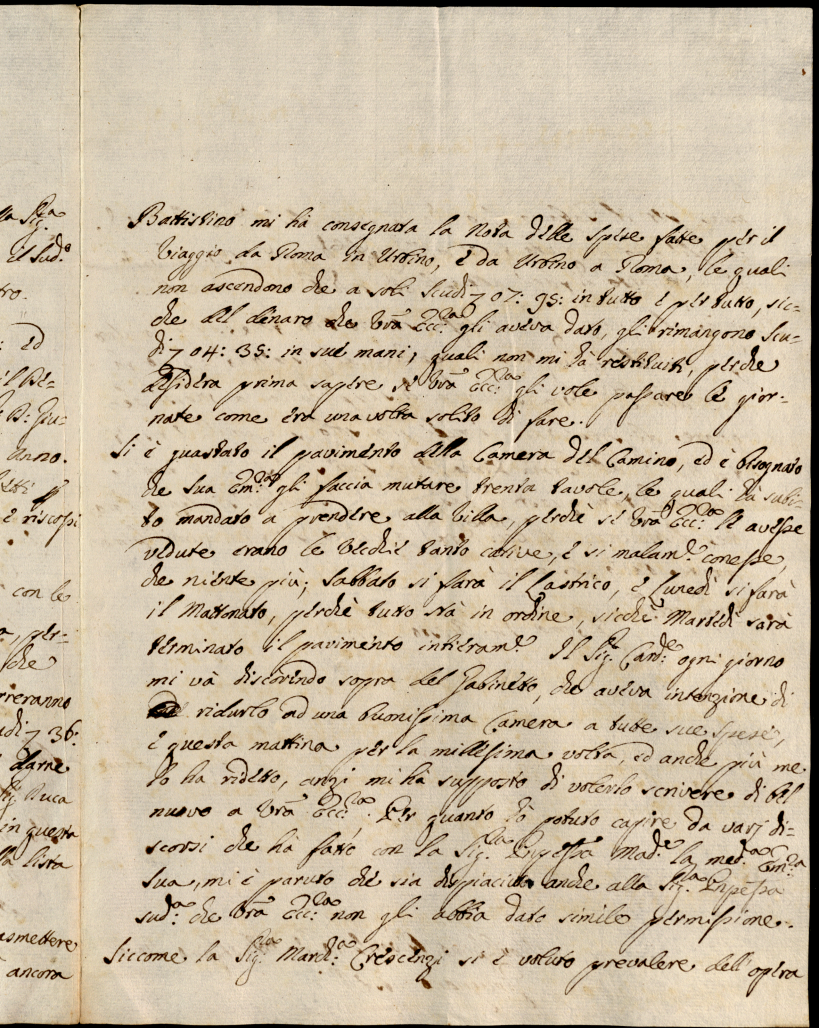 lla Sig.ra
il Sud.o
tro.
: ed
il Be-
B: Giu-
anno.
è riscossi
con le
a, per-
che
rreranno
udi 7 36:
darne
Sig. Duca
in questa
la lista
asmettere
ancora
Battistino mi hà consegnata la nota delle spese fatte per il
Viaggio da Roma in Urbino, e da Urbino a Roma, le quali
non ascendono che a soli Scudi 7 07: 95: in tutto e per tutto, sic-
che del denaro che Vrã Ecc:za gli aveva dato, gli rimangono Scu-
di 7 04: 35: in sue mani, quali non mi hà restituiti, perche
desidera prima sapere se Vrã Ecc:za gli vole passare le gior-
nate come era una volta solito di fare.
Si è guastato il pavimento della Camera del Camino, ed è bisognato
che Sua Em:za gli faccia mutare trenta tavole, le quali hà subi-
to mandato a prendere alla Villa, perchè se Vrã Ecc:za le avesse
vedute erano le Vecchie tanto cative, e si malam.e conesse,
che niente più; Sabbato si farà il Lastrico, e Lunedi si farà
il Mattonato, perchè tutto stà in ordine, sicchè Martedi sarà
terminato il pavimento intieram.e Il Sig.r Card.e ogni giorno
mi và discorendo sopra del Gabinetto, che aveva intenzione di
ridurlo ad una buonissima Camera a tutte sue spese,
e questa mattina per la millesima volta, ed anche più me
lo ha ridetto, anzi mi hà supposto di volerlo scrivere di bel
nuovo a Vrã Ecc:za. Per quanto hò potuto capire da varj di-
scorsi che hà fatto con la Sig.ra Pnpessa Mad.e la med.a Em:za
Sua, mi è paruto che sia dispiaciuto anche alla Sig.ra Pnpessa
sud:a che Vrã Ecc:za non gli abbia dato simile permissione.
Siccome la Sig.ra March:a Crescenzi si è voluto prevalere dell'opera